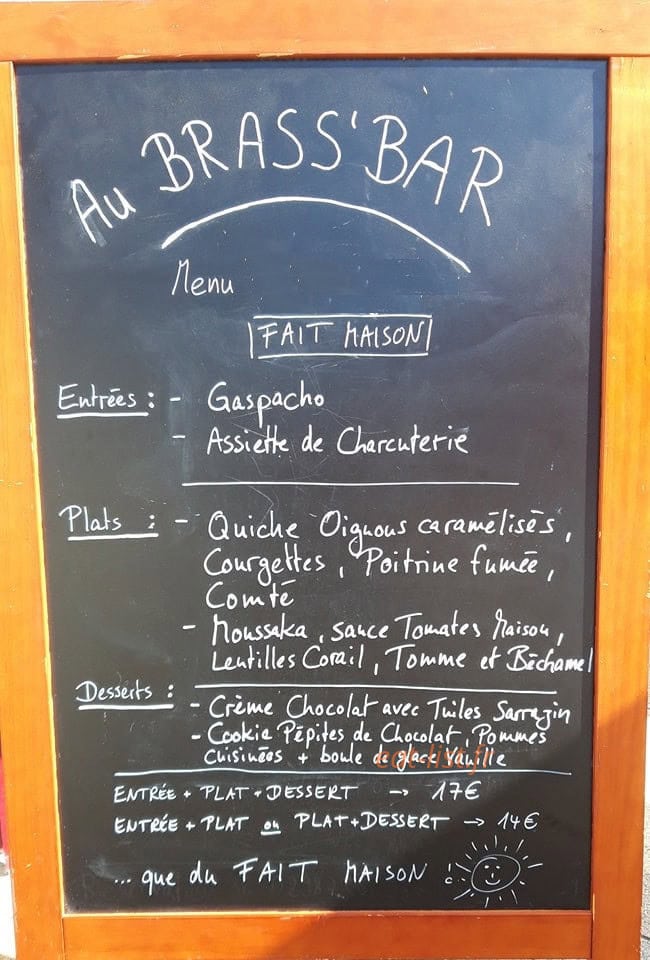 Au BRASS'BAR
Menu
FAIT MAISON
Entrées : - Gaspacho
- Assiette de Charcuterie
Plats : - Quiche Oignons caramélisés,
Courgettes, Poitrine fumée,
Comté
- Moussaka, sauce Tomates Maison,
Lentilles Corail, Tomme et Béchamel
Desserts :
- Crème Chocolat avec Tuiles Sarrazin
- Cookie Pépites de Chocolat, Pommes
Cuisinées + boule de glace Vanille
eat-list.fr
ENTRÉE + PLAT + DESSERT → 17€
ENTRÉE + PLAT ou PLAT + DESSERT → 14€
... que du FAIT MAISON !